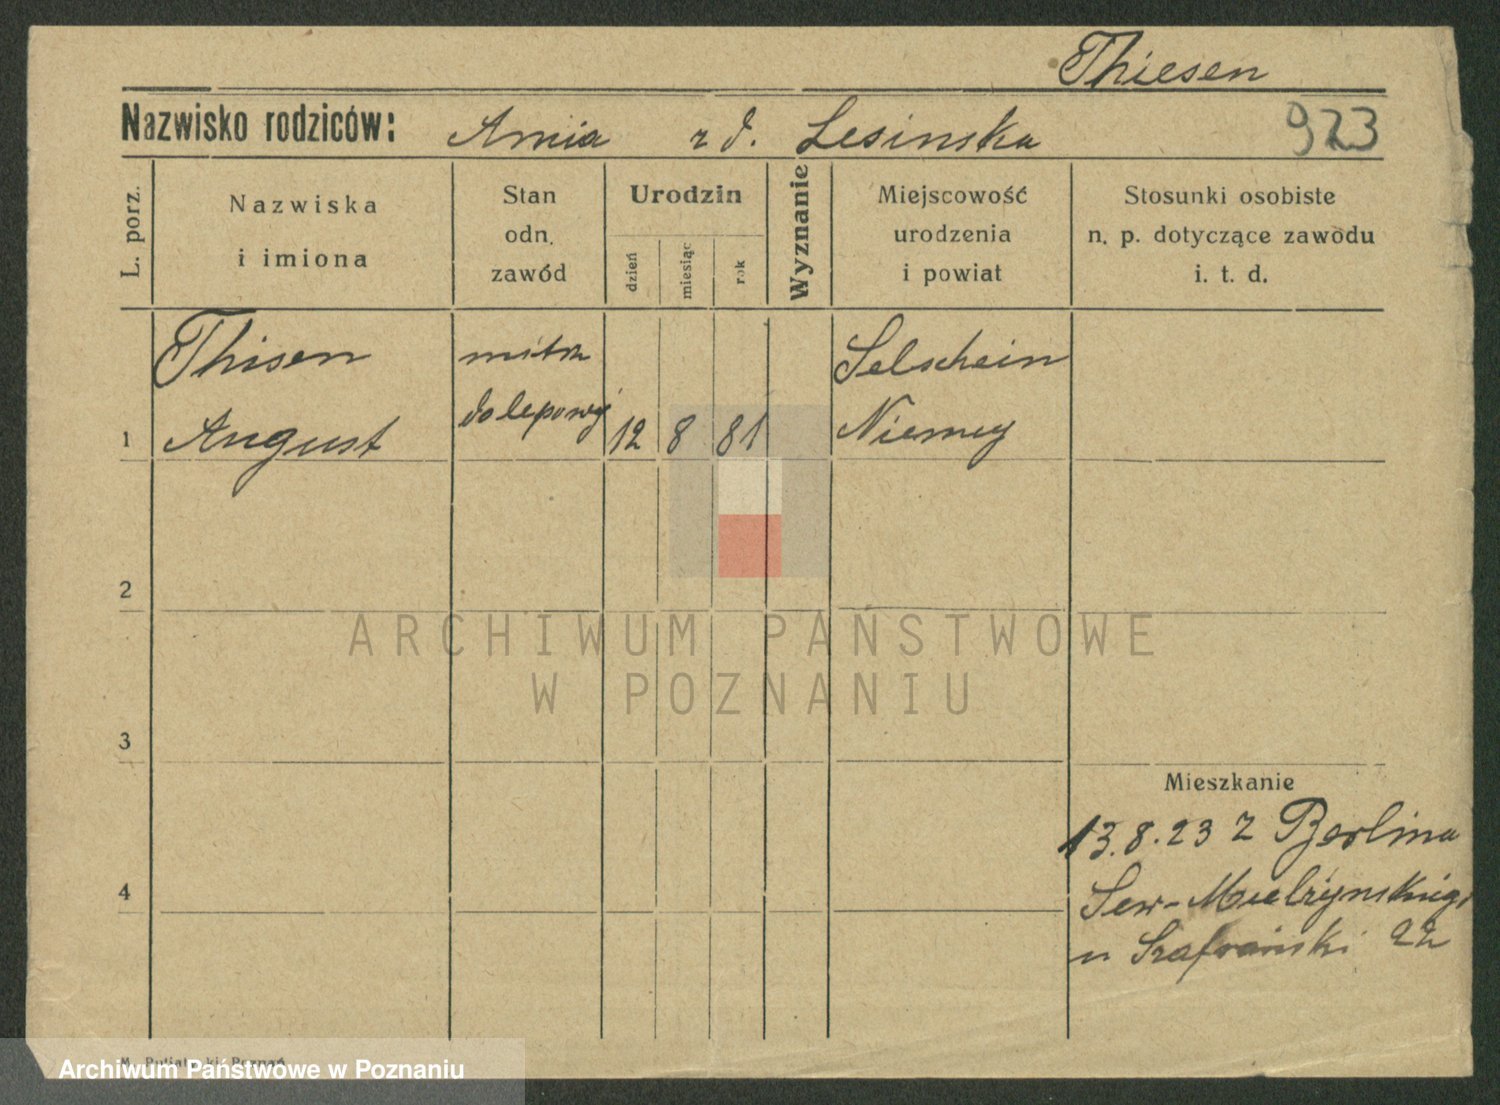 Thiesen
Nazwisko rodziców: Amia z d. Lesinska
923
L. porz.
Nazwiska
i imiona
Stan
odn.
zawód
Urodzin
dzień
miesiąc
rok
Wyznanie
Miejscowość
urodzenia
i powiat
Stosunki osobiste
n. p. dotyczące zawodu
i. t. d.
1
Thisen
August
12 8 81
Selschein
Niemcy
2
ARCHIWUM PAŃSTWOWE
W POZNANIU
3
Mieszkanie
13.8.23 z Berlina
4
Sew-Mielżynskiego
u Szafrański 22
Poznań
Archiwum Państwowe w Poznaniu